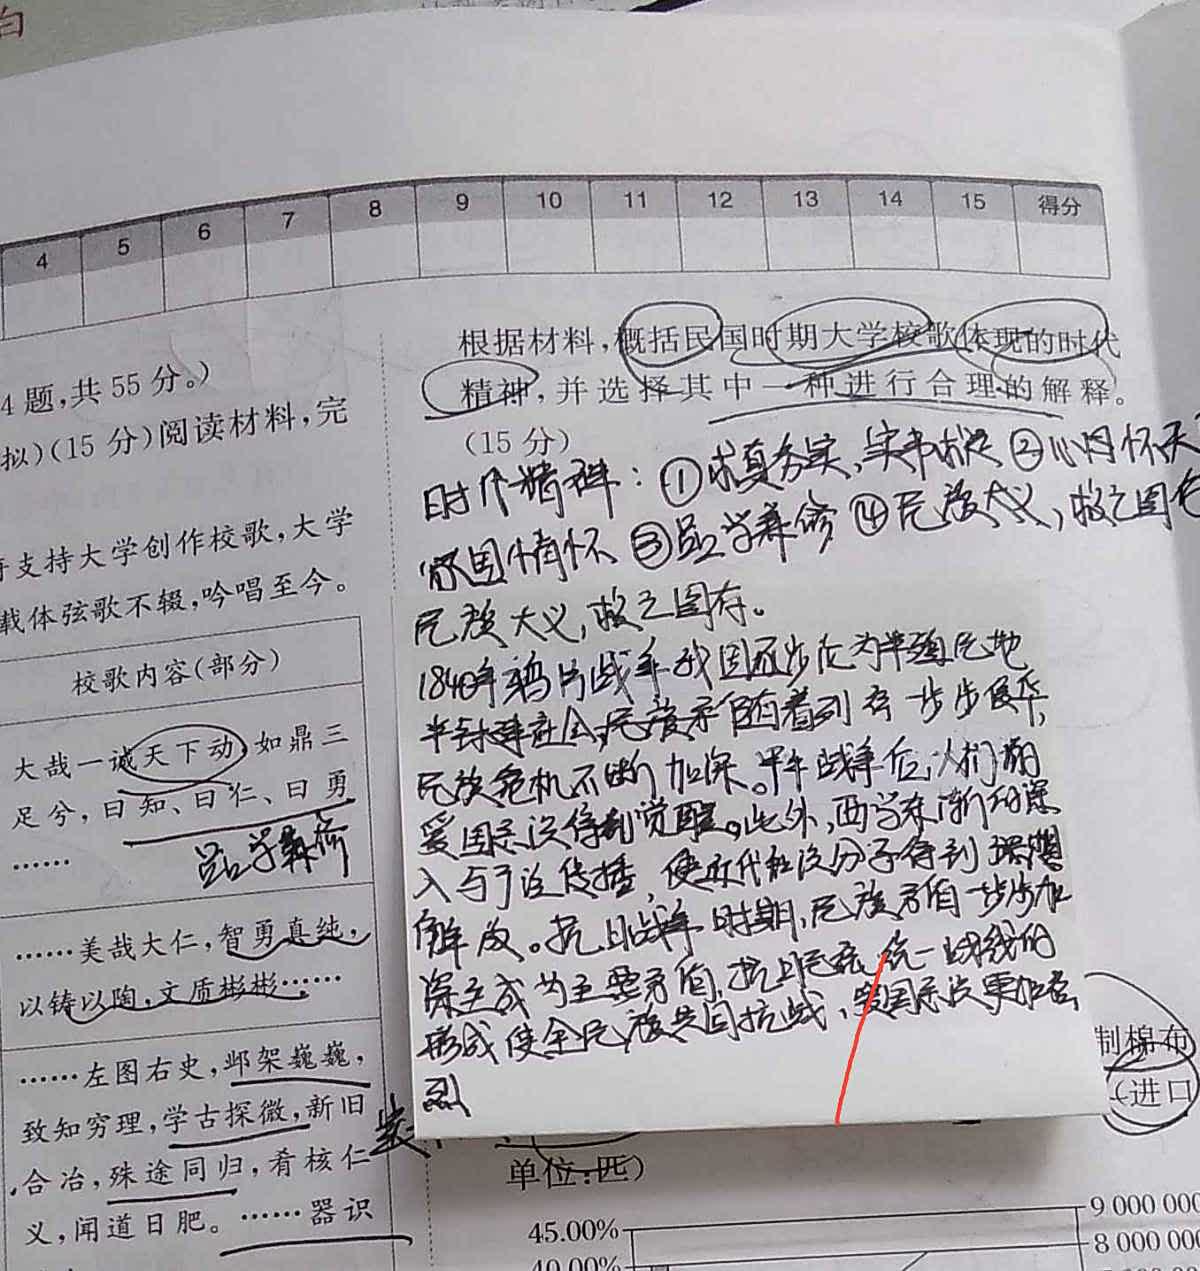 白
4 5 6 7 8 9 10 11 12 13 14 15 得分
4题,共55分。)
拟)(15分)阅读材料,完
支持大学创作校歌,大学
载体弦歌不辍,吟唱至今。
校歌内容(部分)
大哉一诚天下动,如鼎三
足兮,曰知、曰仁、曰勇
……
品学兼修
……美哉大仁,智勇真纯,
以铸以陶,文质彬彬……
……左图右史,邺架巍巍,
致知穷理,学古探微,新旧
合冶,殊途同归,肴核仁
义,闻道日肥。……器识
根据材料,概括民国时期大学校歌体现的时代
精神,并选择其中一种进行合理的解释。
(15分)
时代精神:①求真务实,实事求是 ②心怀天
家国情怀 ③品学兼修 ④民族大义,救亡图存
民族大义,救亡图存。
1840年鸦片战争我国逐步沦为半殖民地
半封建社会,民族矛盾随着列强一步步侵华,
民族危机不断加深。甲午战争后,人们的
爱国意识得到觉醒。此外,西学东渐的深
入与广泛传播,使近代知识分子得到思想
解放。抗日战争时期,民族矛盾一步步加
深主成为主要矛盾,抗日民族统一战线的
形成使全民族共同抗战,爱国意识更加强
烈
制棉布
(进口
单位:匹)
45.00%
40.00%
9 000 000
8 000 000